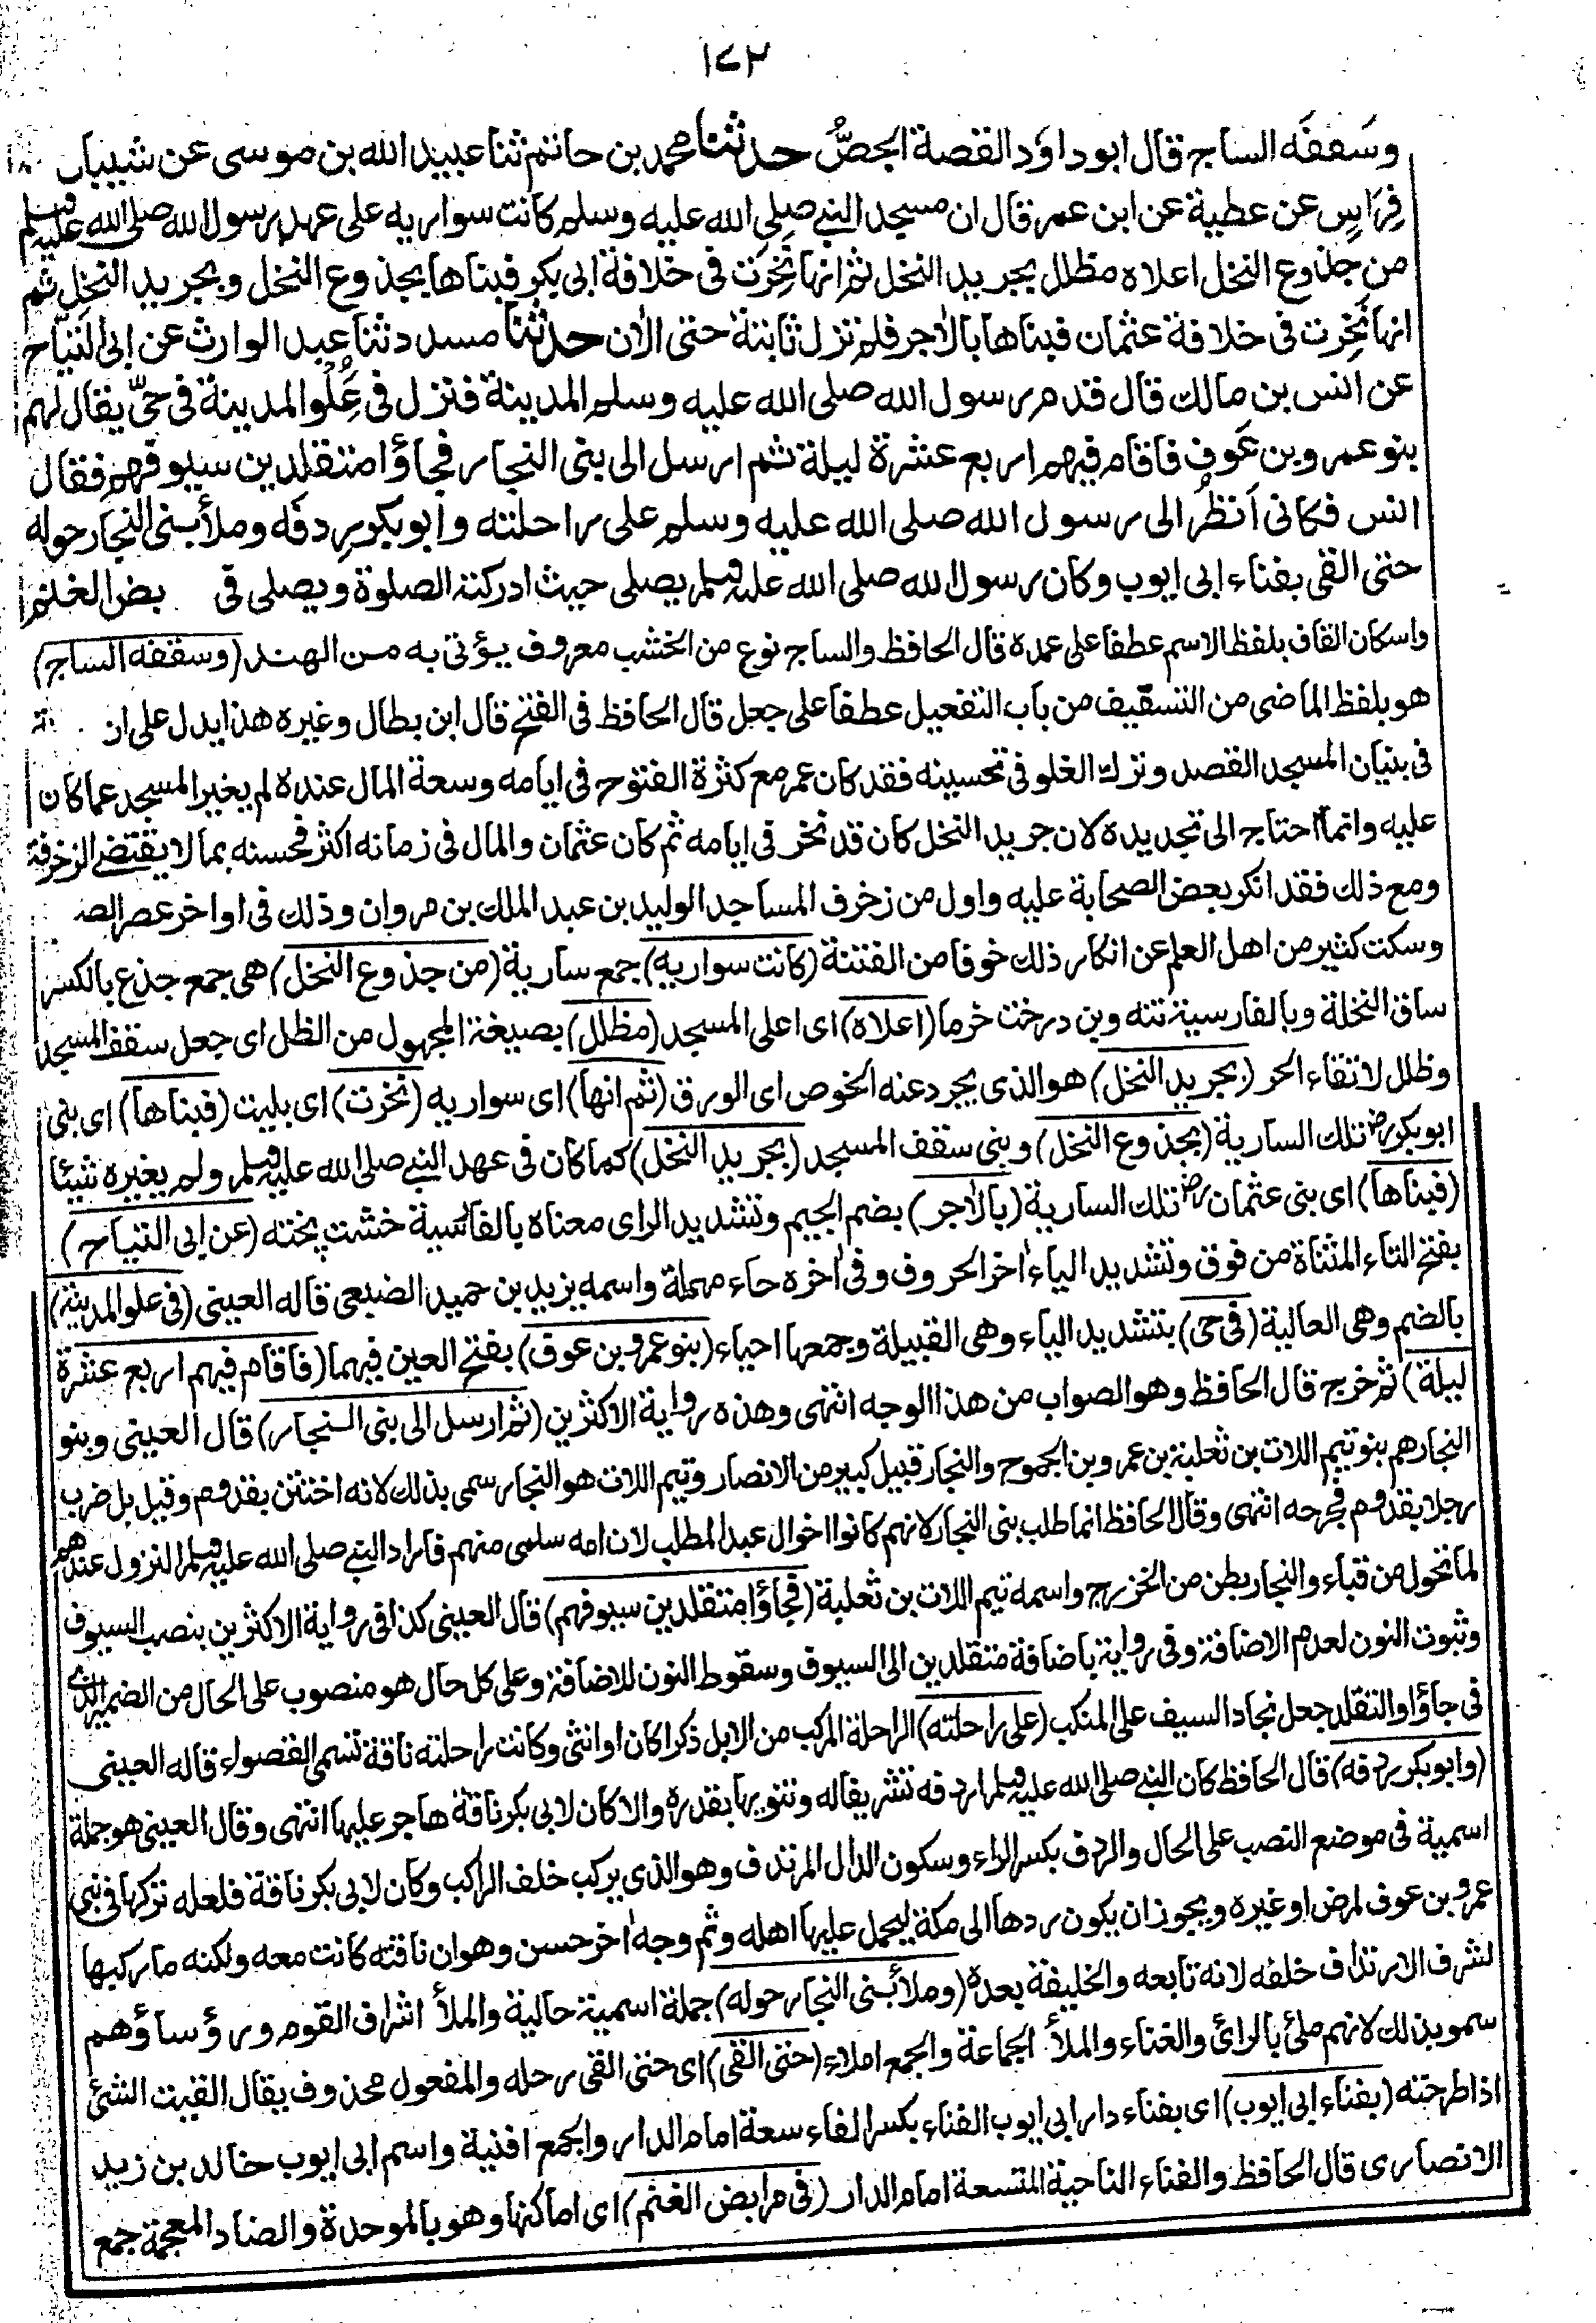 ١٧٣
وسَقفَه الساج قال ابو داؤد القصة الجصُّ حدثنا محمد بن حاتم ثنا عبيد الله بن موسى عن شيبان
فِرَاسٍ عن عطية عن ابن عمر قال ان مسجد النبي صلى الله عليه وسلم كانت سواريه على عهد رسول الله صلى الله عليه وسلم
من جذوع النخل اعلاه مظلل بجريد النخل ثم انها نَخِرَت فى خلافة ابى بكر فبناها بجذوع النخل وبجريد النخل ثم
انها نَخِرت فى خلافة عثمان فبناها بالآجر فلم تزل ثابتة حتى الآن حدثنا مسدد ثنا عبد الوارث عن ابى التياح
عن انس بن مالك قال قدم رسول الله صلى الله عليه وسلم المدينة فنزل فى عُِلْو المدينة فى حىّ يقال لهم
بنو عمرو بن عَوف فاقام فيهم اربع عشرة ليلة ثم ارسل الى بنى النجار فجاؤا متقلدين سيوفهم فقال
انس فكانى اَنظُر الى رسول الله صلى الله عليه وسلم على راحلته وابو بكر رِدفَه وملأ بنى النجار حوله
حتى القى بفناء ابى ايوب وكان رسول الله صلى الله عليه وسلم يصلى حيث ادركته الصلوة ويصلى فى بض الغنم
واسكان القاف بلفظ الاسم عطفا على عمده قال الحافظ والساج نوع من الخشب معروف يؤتى به من الهند (وسقفه الساج)
هو بلفظ الماضى من التسقيف من باب التفعيل عطفا على جعل قال الحافظ فى الفتح قال ابن بطال وغيره هذا يدل على ان
فى بنيان المسجد القصد وترك الغلو فى تحسينه فقد كان عمر مع كثرة الفتوح فى ايامه وسعة المال عنده لم يغير المسجد عما كان
عليه وانما احتاج الى تجديده لان جريد النخل كان قد نخر فى ايامه ثم كان عثمان والمال فى زمانه اكثر فحسنه بما لا يقتضى الزخرفة
ومع ذلك فقد انكر بعض الصحابة عليه واول من زخرف المساجد الوليد بن عبد الملك بن مروان وذلك فى اواخر عصر الصـ
وسكت كثير من اهل العلم عن انكار ذلك خوفا من الفتنة (كانت سواريه) جمع سارية (من جذوع النخل) هى جمع جذع بالكسر
ساق النخلة وبالفارسية تنه وبن درخت خرما (اعلاه) اى اعلى المسجد (مظلل) بصيغة المجهول من الظل اى جعل سقف المسجد
وظلل لاتقاء الحر (بجريد النخل) هو الذى يجرد عنه الخوص اى الورق (ثم انها) اى سواريه (نخرت) اى بليت (فبناها) اى بنى
ابو بكر رض تلك السارية (بجذوع النخل) وبنى سقف المسجد (بجريد النخل) كما كان فى عهد النبي صلى الله عليه وسلم ولم يغيره شيئا
(فبناها) اى بنى عثمان رض تلك السارية (بالآجر) بضم الجيم وتشديد الراى معناه بالفارسية خشت پخته (عن ابى التياح)
بفتح التاء المثناة من فوق وتشديد الياء آخر الحروف وفى آخره حاء مهملة واسمه يزيد بن حميد الضبعى قاله العينى (فى علو المدينة)
بالضم وهى العالية (فى حى) بتشديد الياء وهى القبيلة وجمعها احياء (بنو عمرو بن عوف) بفتح العين فيهما (فاقام فيهم اربع عشرة
ليلة) ثم خرج قال الحافظ وهو الصواب من هذا الوجه انتهى وهذه رواية الاكثرين (ثم ارسل الى بنى النجار) قال العينى وبنو
النجار هم بنو تيم اللات بن ثعلبة بن عمرو بن الجموح والنجار قبيل كبير من الانصار وتيم اللات هو النجار سمى بذلك لانه اختتن بقدوم وقيل بل ضرب
رجلا بقدوم فجرحه انتهى وقال الحافظ انما طلب بنى النجار لانهم كانوا اخوال عبد المطلب لان امه سلمى منهم فاراد النبي صلى الله عليه وسلم النزول عندهم
لما تحول من قباء والنجار بطن من الخزرج واسمه تيم اللات بن ثعلبة (فجاؤا متقلدين سيوفهم) قال العينى كذا فى رواية الاكثرين بنصب السيوف
وثبوت النون لعدم الاضافة وفى رواية باضافة متقلدين الى السيوف وسقوط النون للاضافة وعلى كل حال هو منصوب على الحال من الضمير الذى
فى جاؤا والتقلد جعل نجاد السيف على المنكب (على راحلته) الراحلة المركب من الابل ذكرا كان او انثى وكانت راحلته ناقة تسمى القصواء قاله العينى
(وابو بكر ردفه) قال الحافظ كان النبي صلى الله عليه وسلم اردفه تشريفا له وتنويها بقدره والا كان لابى بكر ناقة هاجر عليها انتهى وقال العينى هو جملة
اسمية فى موضع النصب على الحال والردف بكسر الراء وسكون الدال المرتدف وهو الذى يركب خلف الراكب وكان لابى بكر ناقة فلعله تركها فى بنى
عمرو بن عوف لمرض او غيره ويجوز ان يكون ردها الى مكة ليحمل عليها اهله وثم وجه آخر حسن وهو ان ناقته كانت معه ولكنه ما ركبها
لشرف الارتداف خلفه لانه تابعه والخليفة بعده (وملأ بنى النجار حوله) جملة اسمية حالية والملأ اشراف القوم ورؤساؤهم
سمو بذلك لانهم ملئ بالرائ والغناء والملأ الجماعة والجمع املاء (حتى القى) اى حتى القى رحله والمفعول محذوف يقال القيت الشئ
اذا طرحته (بفناء ابى ايوب) اى بفناء دار ابى ايوب الفناء بكسر الفاء سعة امام الدار والجمع افنية واسم ابى ايوب خالد بن زيد
الانصارى قال الحافظ والفناء الناحية المتسعة امام الدار (فى مرابض الغنم) اى اماكنها وهو بالموحدة والضاد المعجمة جمع